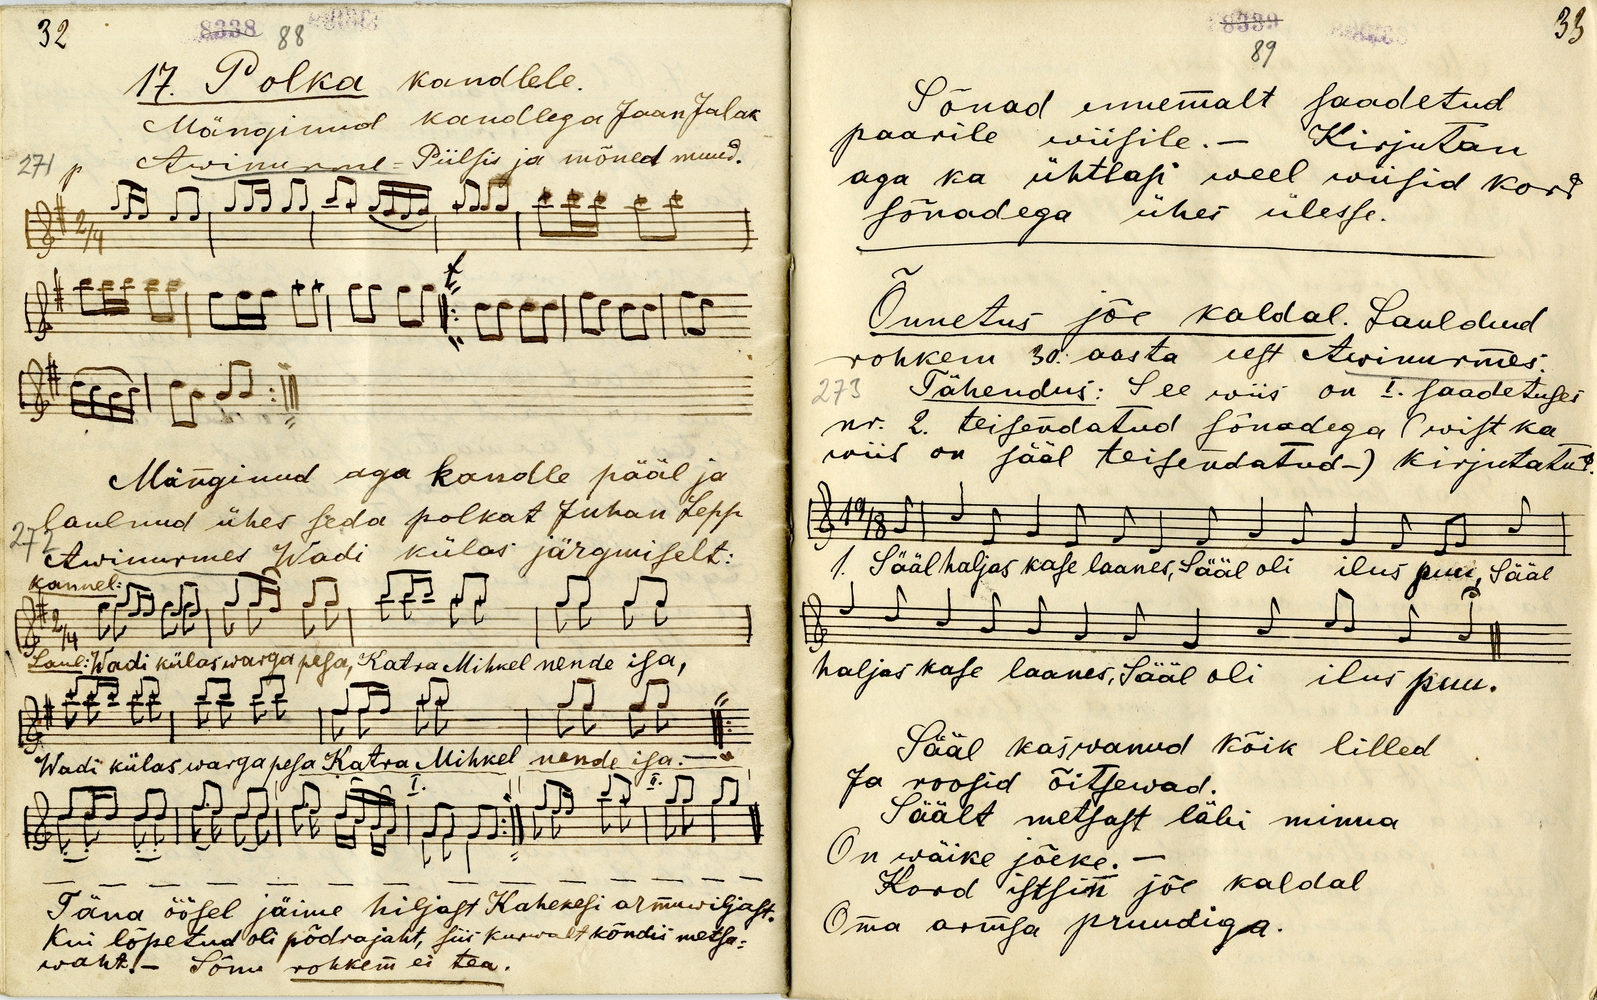 32
8338
88
17. Polka kandlele.
Mänginud kandlega Jaan Jalak
271
p
Awinurme= Piilsis ja mõned muud.
2/4
Mänginud aga kandle pääl ja
laulnud ühes seda polkat Juhan Sepp
272
Awinurmes Wadi külas järgmiselt:
kannel:
2/4
Laul: Wadi külas warga pesa, Katra Mihkel nende isa,
Wadi külas warga pesa Katra Mihkel nende isa.—
I. II.
Täna öösel jäime hiljast Kahekesi armuwiljast.
Kui lõpetud oli põdrajaht, siis kurwalt kõndis metsa=
waht.— Sõnu rohkem ei tea.
8339
33
89
Sõnad ennemalt saadetud
paarile wiisile.— Kirjutan
aga ka ühtlasi weel wiisid kord
sõnadega ühes ülesse.
Õnnetus jõe kaldal. Lauldud
rohkem 30. aasta eest Awinurmes.
273
Tähendus: See wiis on I. saadetuses
nr. 2. teisendatud sõnadega (wist ka
wiis on sääl teisendatud-) kirjutatud.
1. Sääl haljas kase laanes, Sääl oli ilus puu, Sääl
haljas kase laanes, Sääl oli ilus puu.
Sääl kaswanud kõik lilled
Ja roosid õitsewad.
Säält metsast läbi minna
On wäike jõeke.—
Kord istsin jõe kaldal
Oma armsa pruudiga.